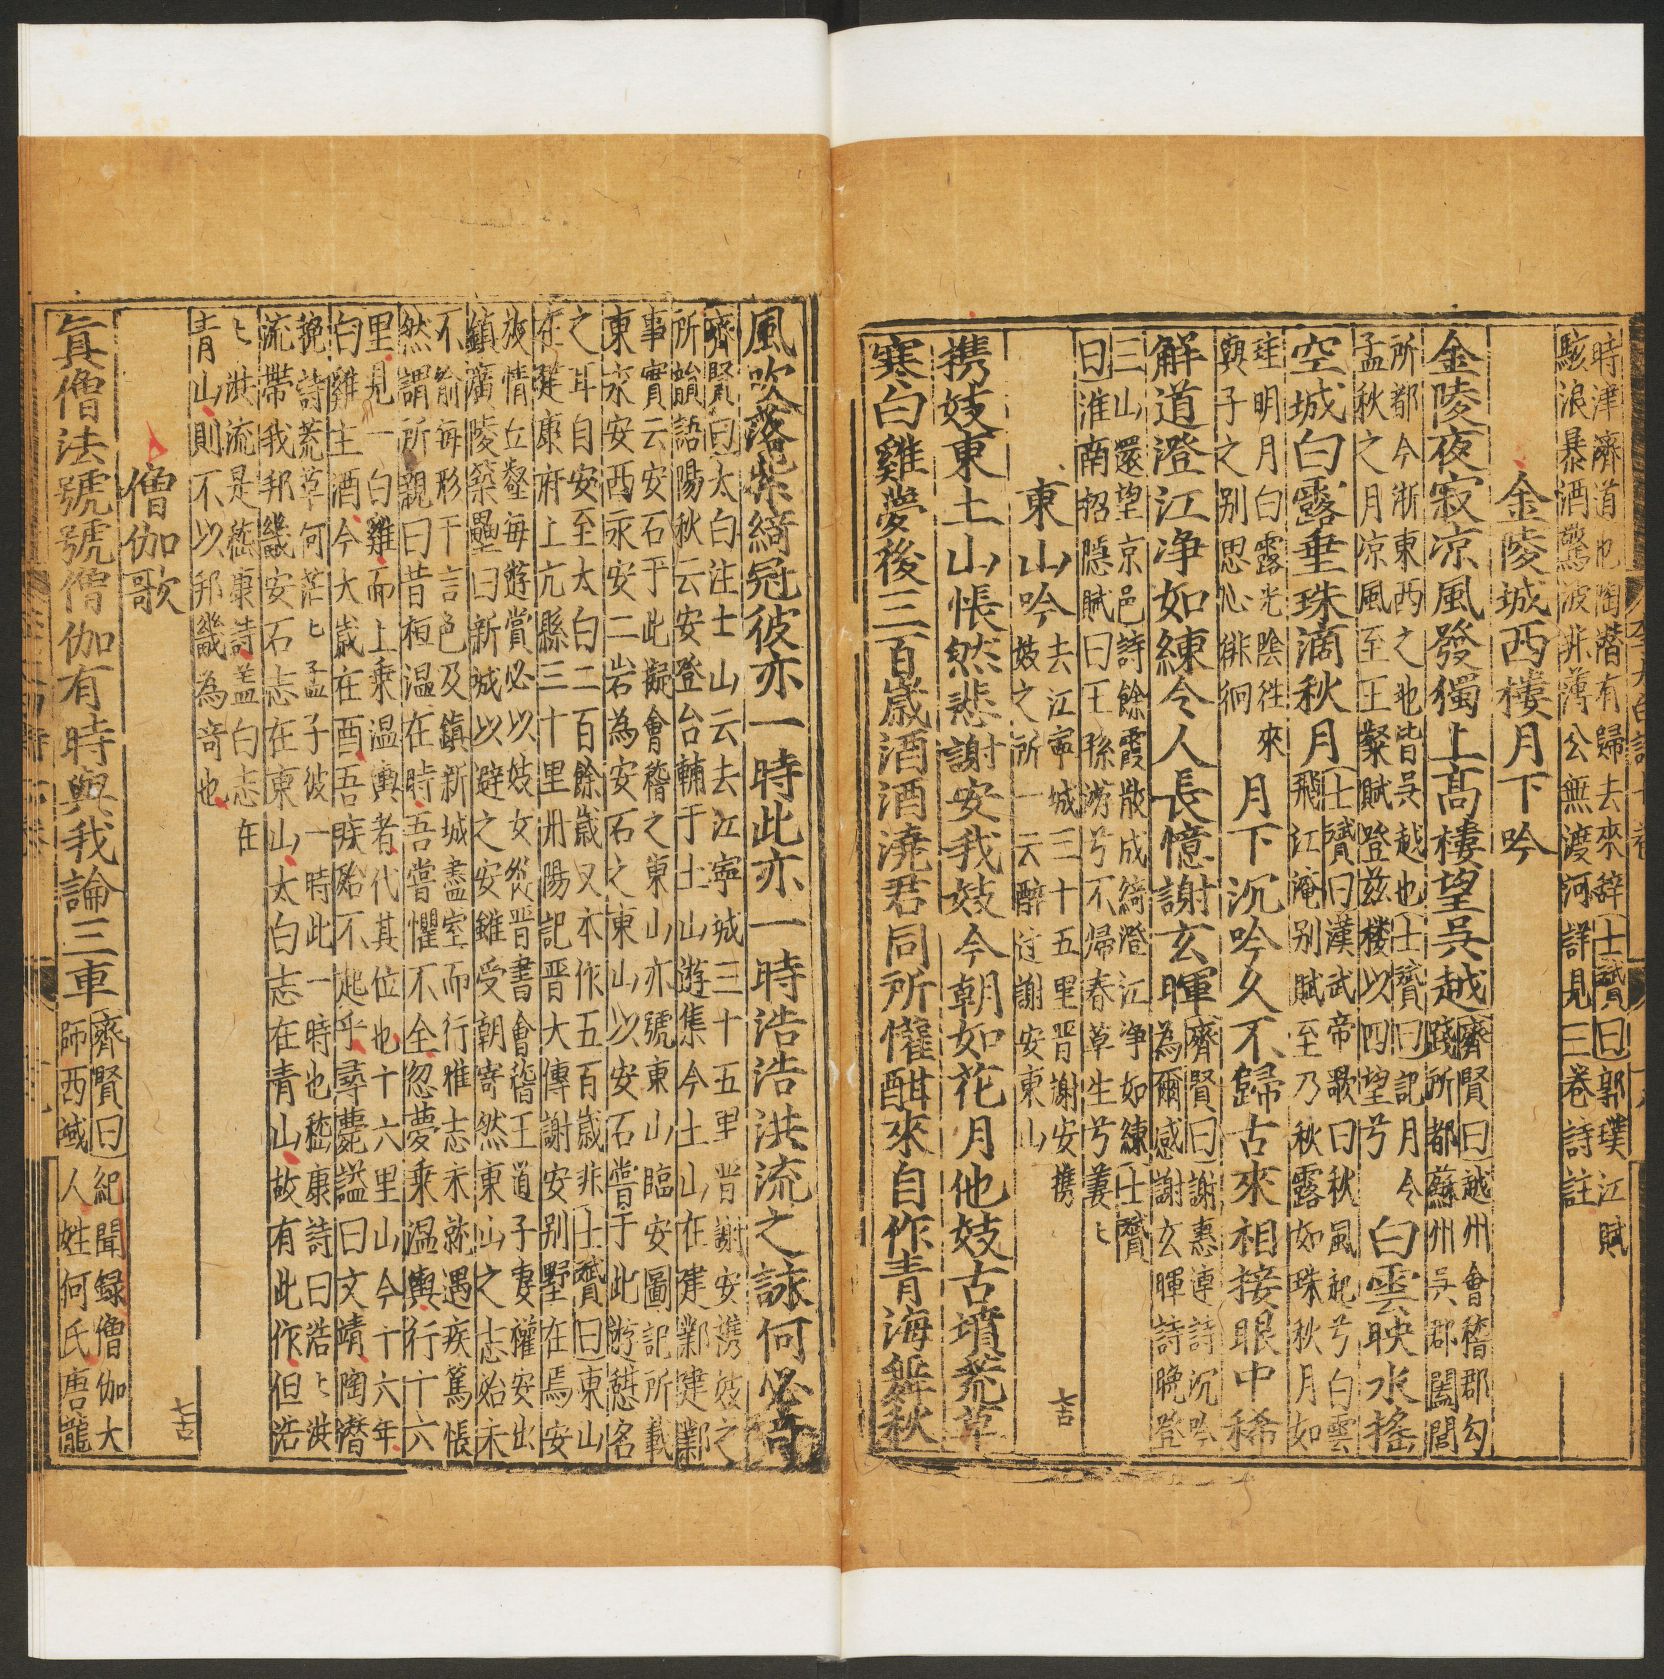 時津濟道也陶潛有歸去來辭士贇曰郭璞江賦
駭浪暴洒驚波飛薄公無渡河詳見三卷詩註
金陵城西樓月下吟
金陵夜寂凉風發獨上高樓望吳越
齊賢曰越州會稽郡勾
踐所都蘇州吳郡闔閭
所都今浙東西之地皆吳越也士贇曰記月令
孟秋之月凉風至王粲賦登兹樓以四望兮
白雲映水搖
空城白露垂珠滴秋月
士贇曰漢武帝歌曰秋風起兮白雲
飛江淹别賦至乃秋露如珠秋月如
珪明月白露光陰徃來
與子之别思心徘徊
月下沉吟久不歸古來相接眼中稀
解道澄江净如練令人長憶謝玄暉
齊賢曰謝惠連詩沉吟
為爾感謝玄暉詩晚登
三山還望京邑詩餘霞散成綺澄江净如練士贇
曰淮南招隠賦曰王孫游兮不歸春草生兮萋〻
東山吟
去江寧城三十五里晋謝安携
妓之所一云醉过謝安東山
七古
携妓東土山悵然悲謝安我妓今朝如花月他妓古墳荒草
寒白雞夢後三百歲洒酒澆君同所懽酣來自作青海舞秋
風吹落紫綺冠彼亦一時此亦一時浩浩洪流之詠何必竒
齊賢曰太白注土山云去江寧城三十五里晋謝安携妓之
所韻語陽秋云安登台輔于土山遊集今土山在建鄴建鄴
事實云安石于此擬會稽之東山亦號東山臨安圖記所載
東永安西永安二岩為安石之東山以安石嘗于此遊憇名
之耳自安至太白二百餘歲又本作五百歲非士贇曰東山
在建康府上亢縣三十里丹陽記晋大傳謝安别墅在焉安
放情丘壑毎遊賞必以妓女從晋書會稽王道子專權安出
鎮廣陵築壘曰新城以避之安雖受朝寄然東山之志始末
不渝毎形于言色及鎮新城盡室而行雅志未就遇疾篤悵
然謂所親曰昔桓温在時吾嘗懼不全忽夢乗温輿行十六
里見一白雞而上乗温輿者代其位也十六里山今十六年
白雞主酒今大歲在酉吾疾殆不起乎尋薨諡曰文靖陶潛
挽詩荒草何茫〻孟子彼一時此一時也嵇康詩曰浩〻洪
流帶我邦畿安石志在東山太白志在青山故有此作但浩
〻洪流是嵇康詩盖白志在
青山則不以邦畿為竒也
僧伽歌
七古
真僧法號號僧伽有時與我論三車
齊賢曰紀聞録僧伽大
師西域人姓何氏唐龍